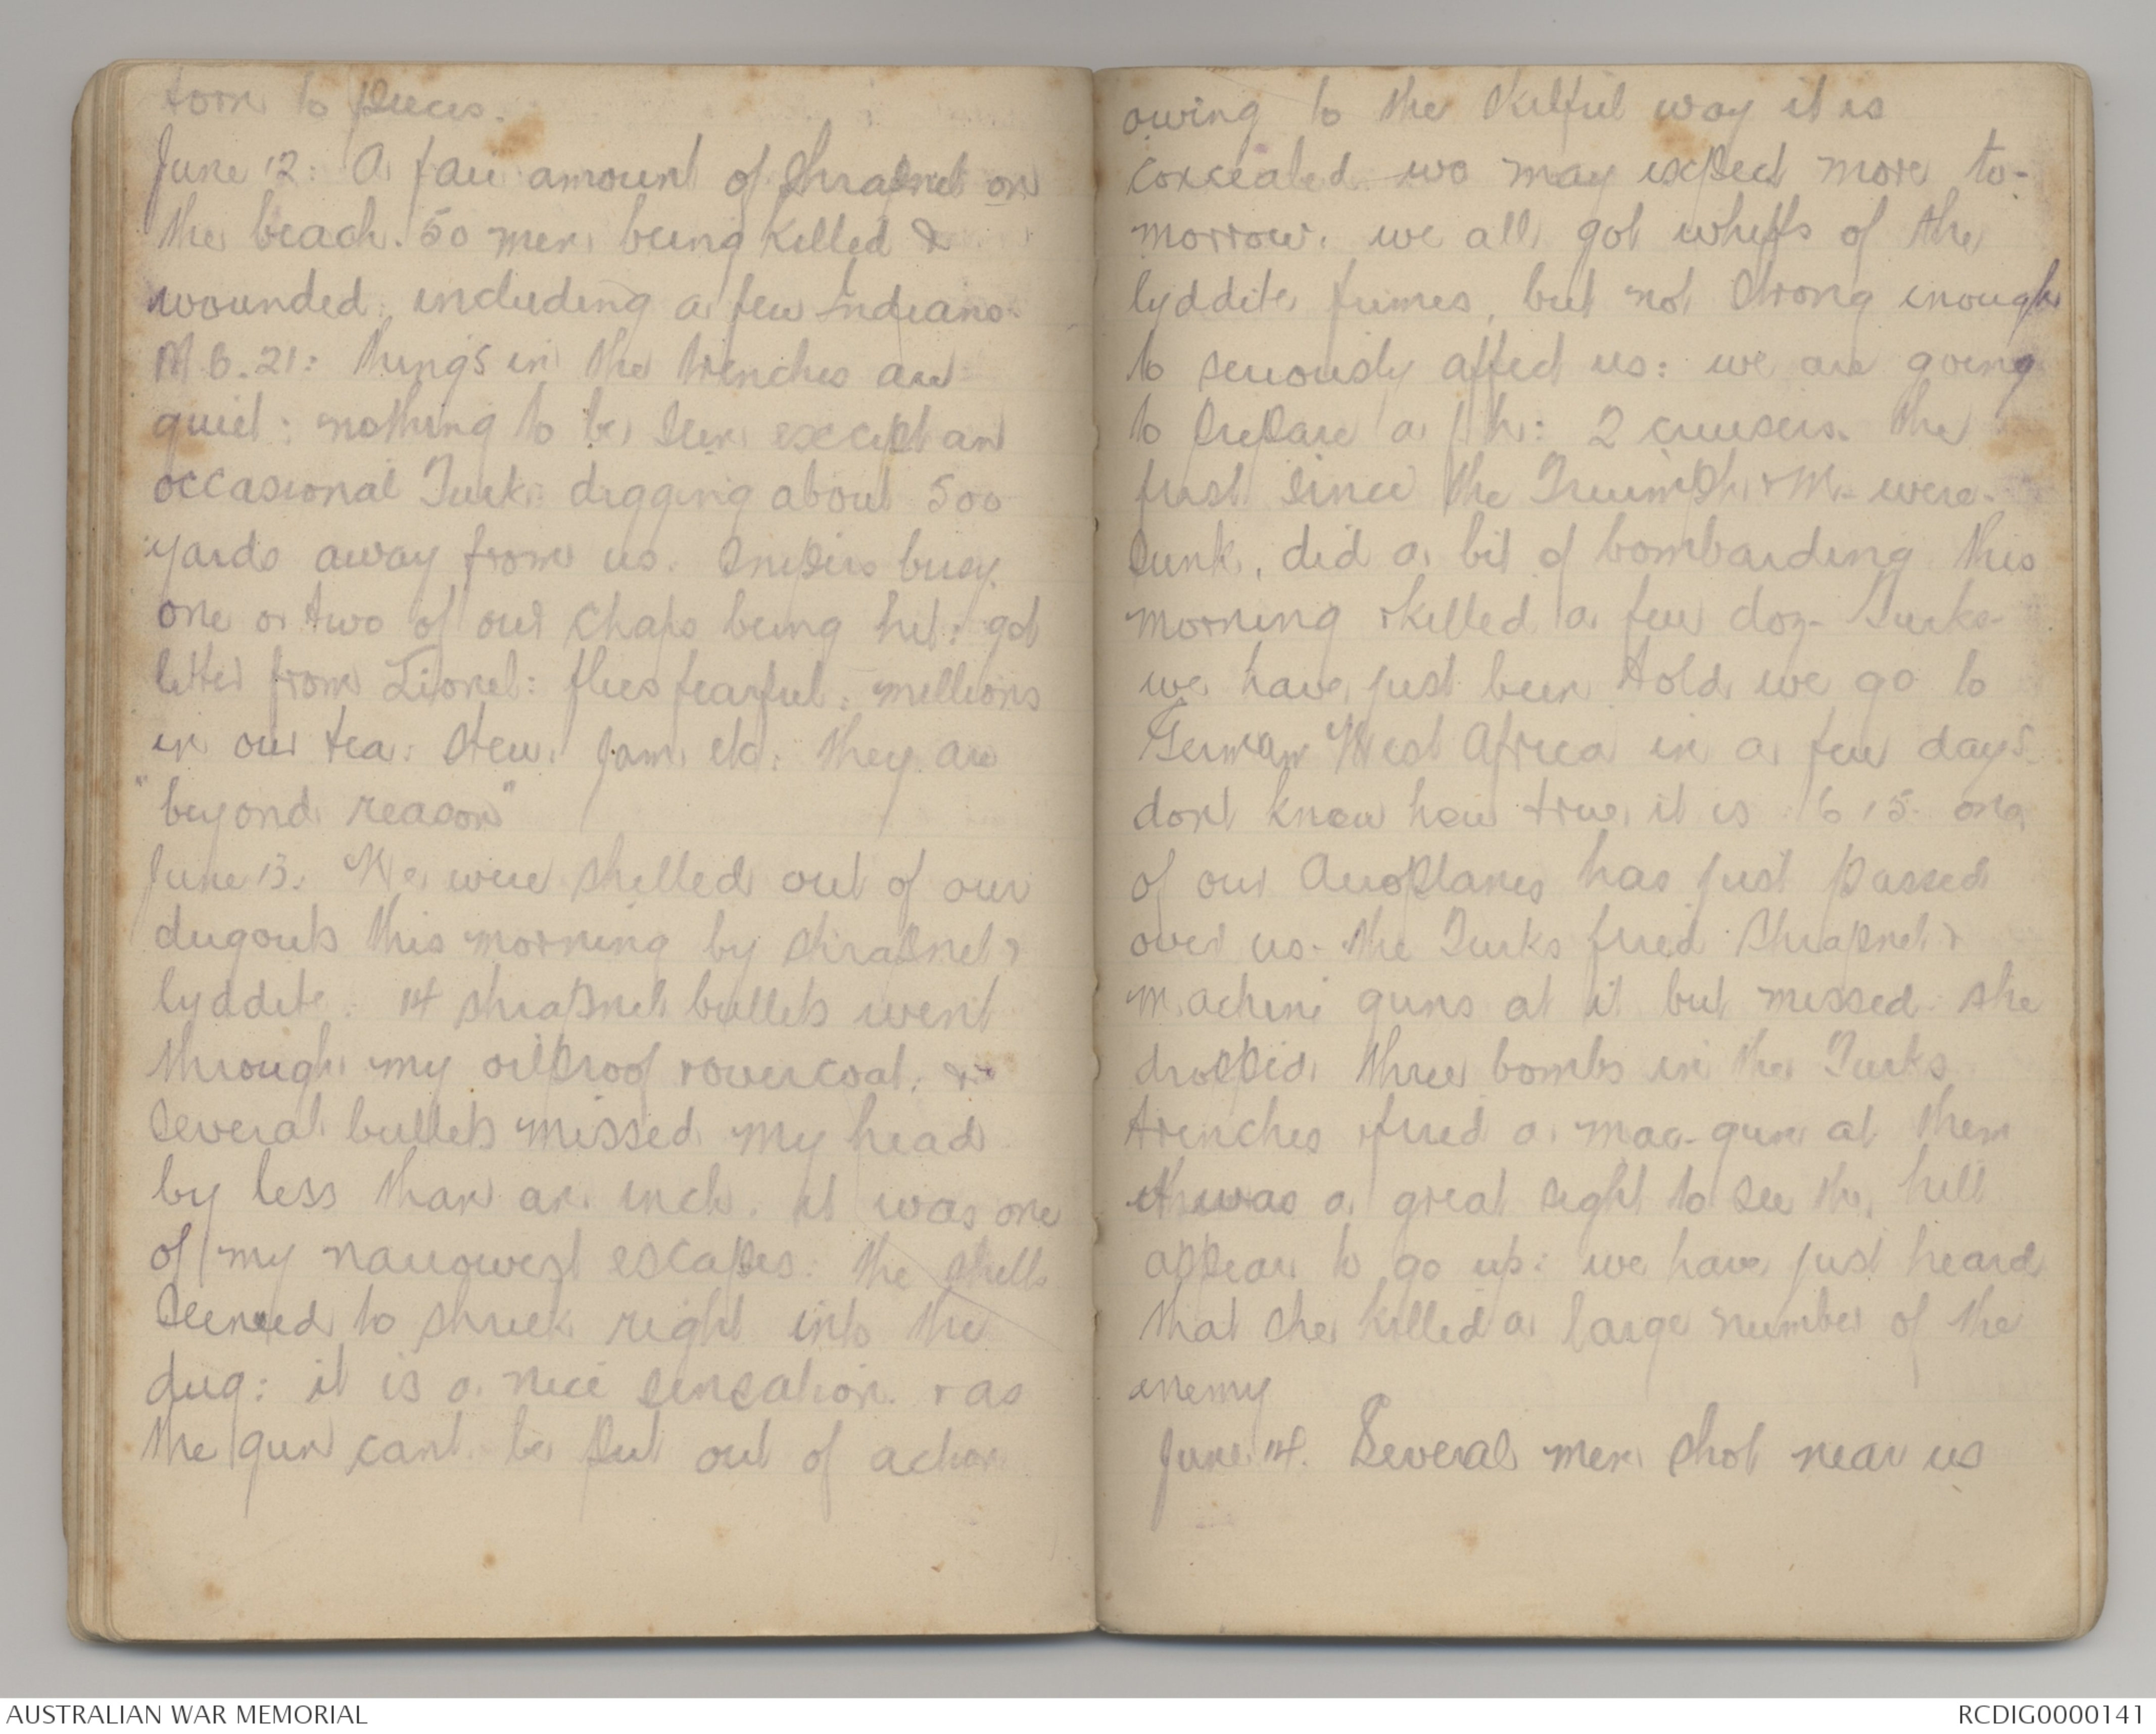 torn to pieces.
June 12: A fair amount of shrapnel on
the beach. 50 men being killed &
wounded, including a few Indians.
M.B.21: things in the trenches are
quiet: nothing to be seen except an
occasional Turk digging about 500
yards away from us. Snipers busy.
one or two of our chaps being hit: got
letter from Lionel: flies fearful: millions
in our tea: stew: jam: etc: they are
"beyond reason"
June 13. We were shelled out of our
dugouts this morning by shrapnel &
lyddite. 14 shrapnel bullets went
through my oilproof & overcoat. &
several bullets missed my head
by less than an inch. it was one
of my narrowest escapes. the shells
seemed to shriek right into the
dug: it is a nice sensation. & as
the gun cant be put out of action
owing to the skilful way it is
concealed we may expect more to-
morrow. we all got whiffs of the
lyddite fumes, but not strong enough
to seriously affect us: we are going
to prepare a f.h: 2 cruisers. the
first since the Triumph & M. were
sunk, did a bit of bombarding this
morning & killed a few doz. Turks
we have just been told we go to
German West Africa in a few days
dont know how true it is 6 15. one
of our Aeroplanes has just passed
over us. the Turks fired shrapnel &
machine guns at it but missed. she
dropped three bombs in the Turks
trenches & fired a mac-gun at them
it was a great sight to see the hill
appear to go up: we have just heard
that she killed a large number of the
enemy
June 14. Several men shot near us
AUSTRALIAN WAR MEMORIAL
RCDIG0000141